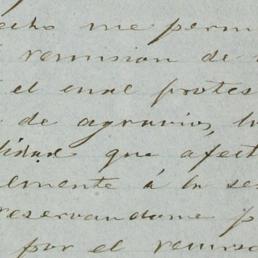 me perm
remision de
el cual protes
de agravios, la
lidad que afect
lmente á la se
reservandome p
por el recurso